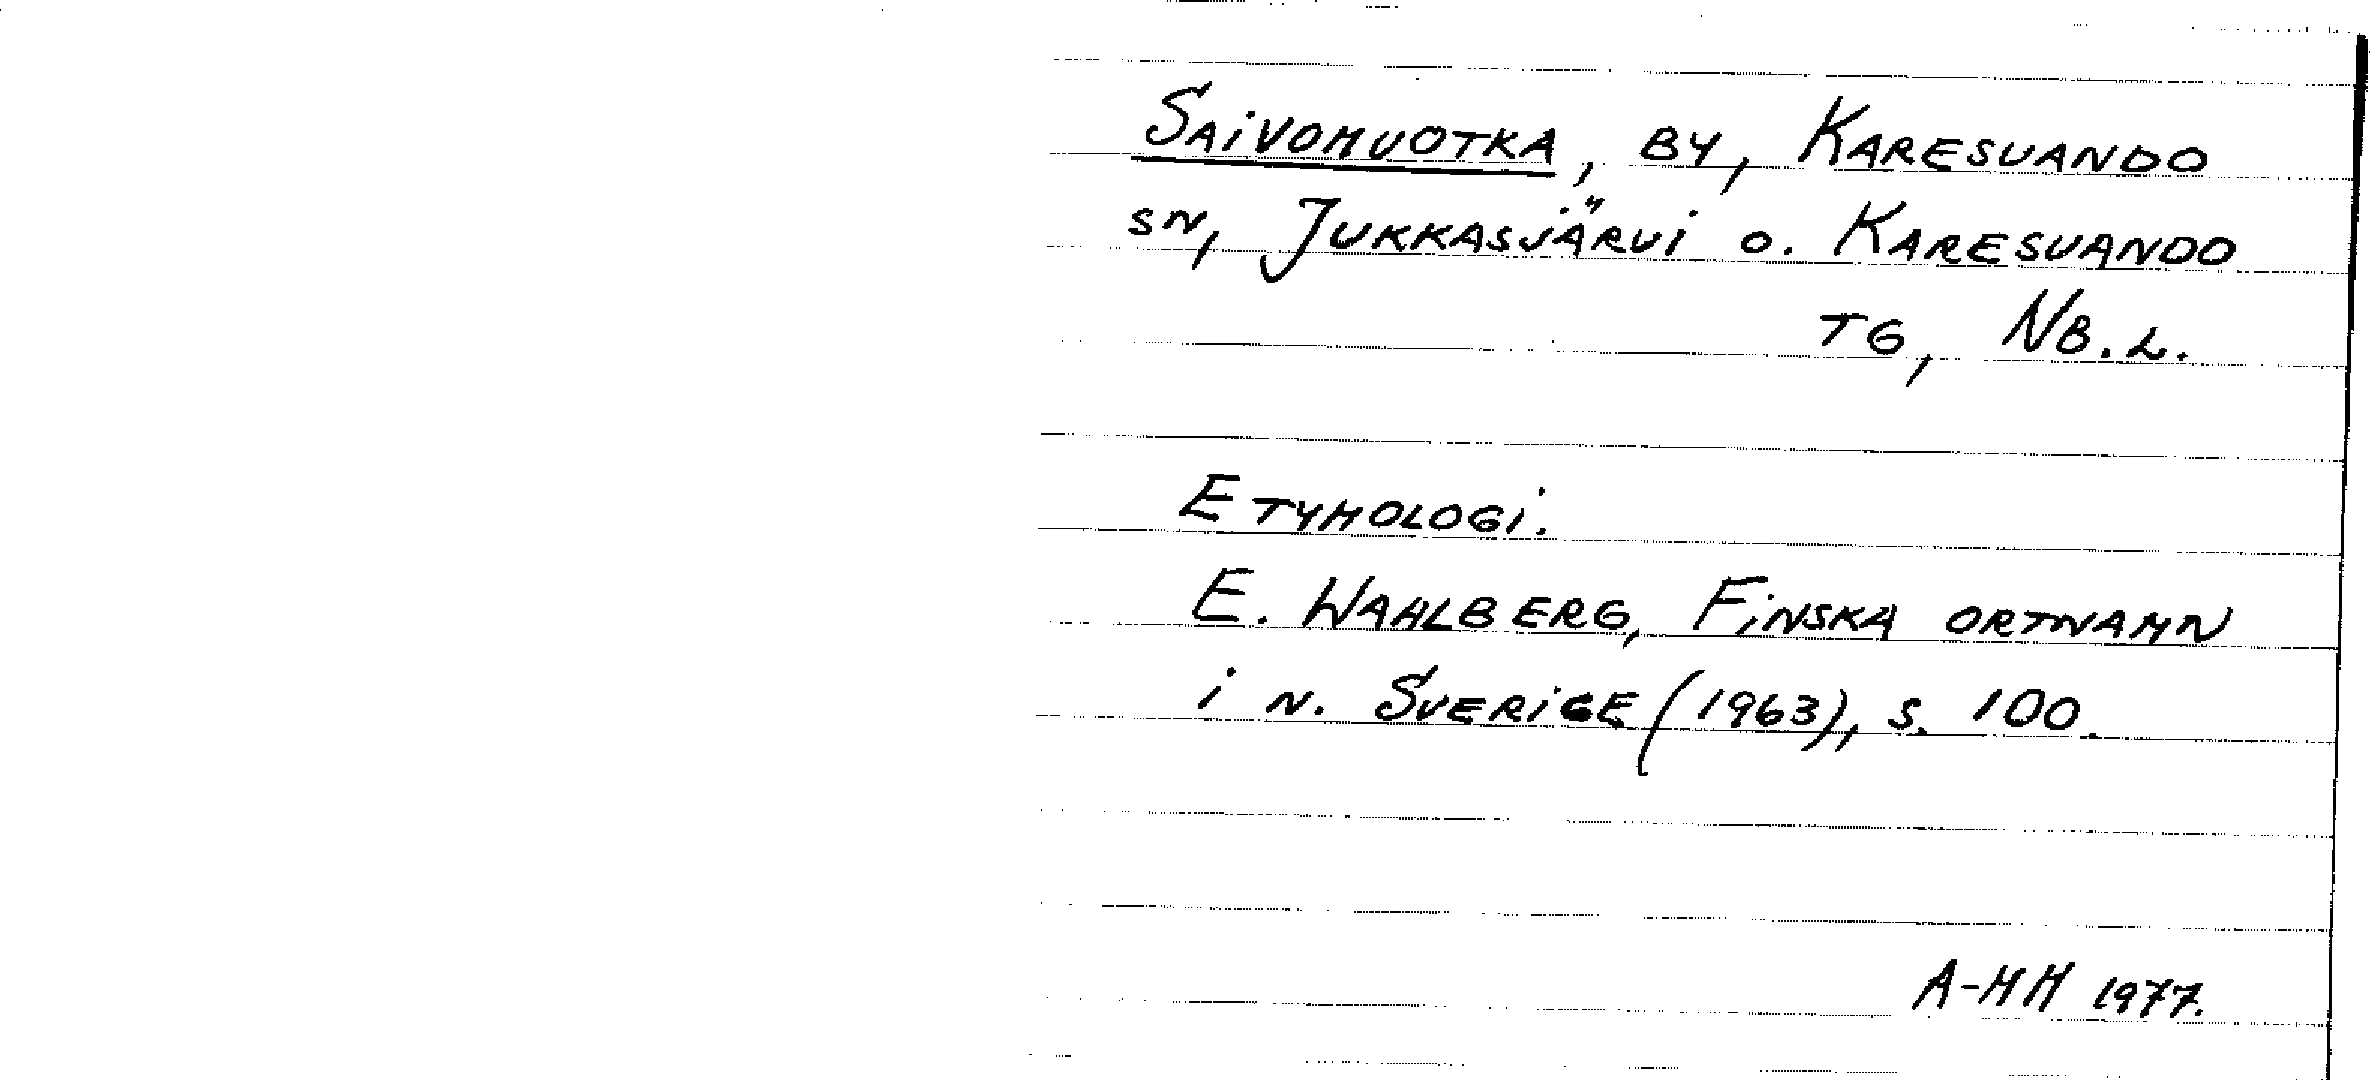 Saivomuotka, by, Karesuando
sn, Jukkasjärvi o. Karesuando
tg, Nb. L.
Etymologi.
E. Wahlberg, Finska ortnamn
i n. Sverige (1963), s. 100.
A-MM 1977.